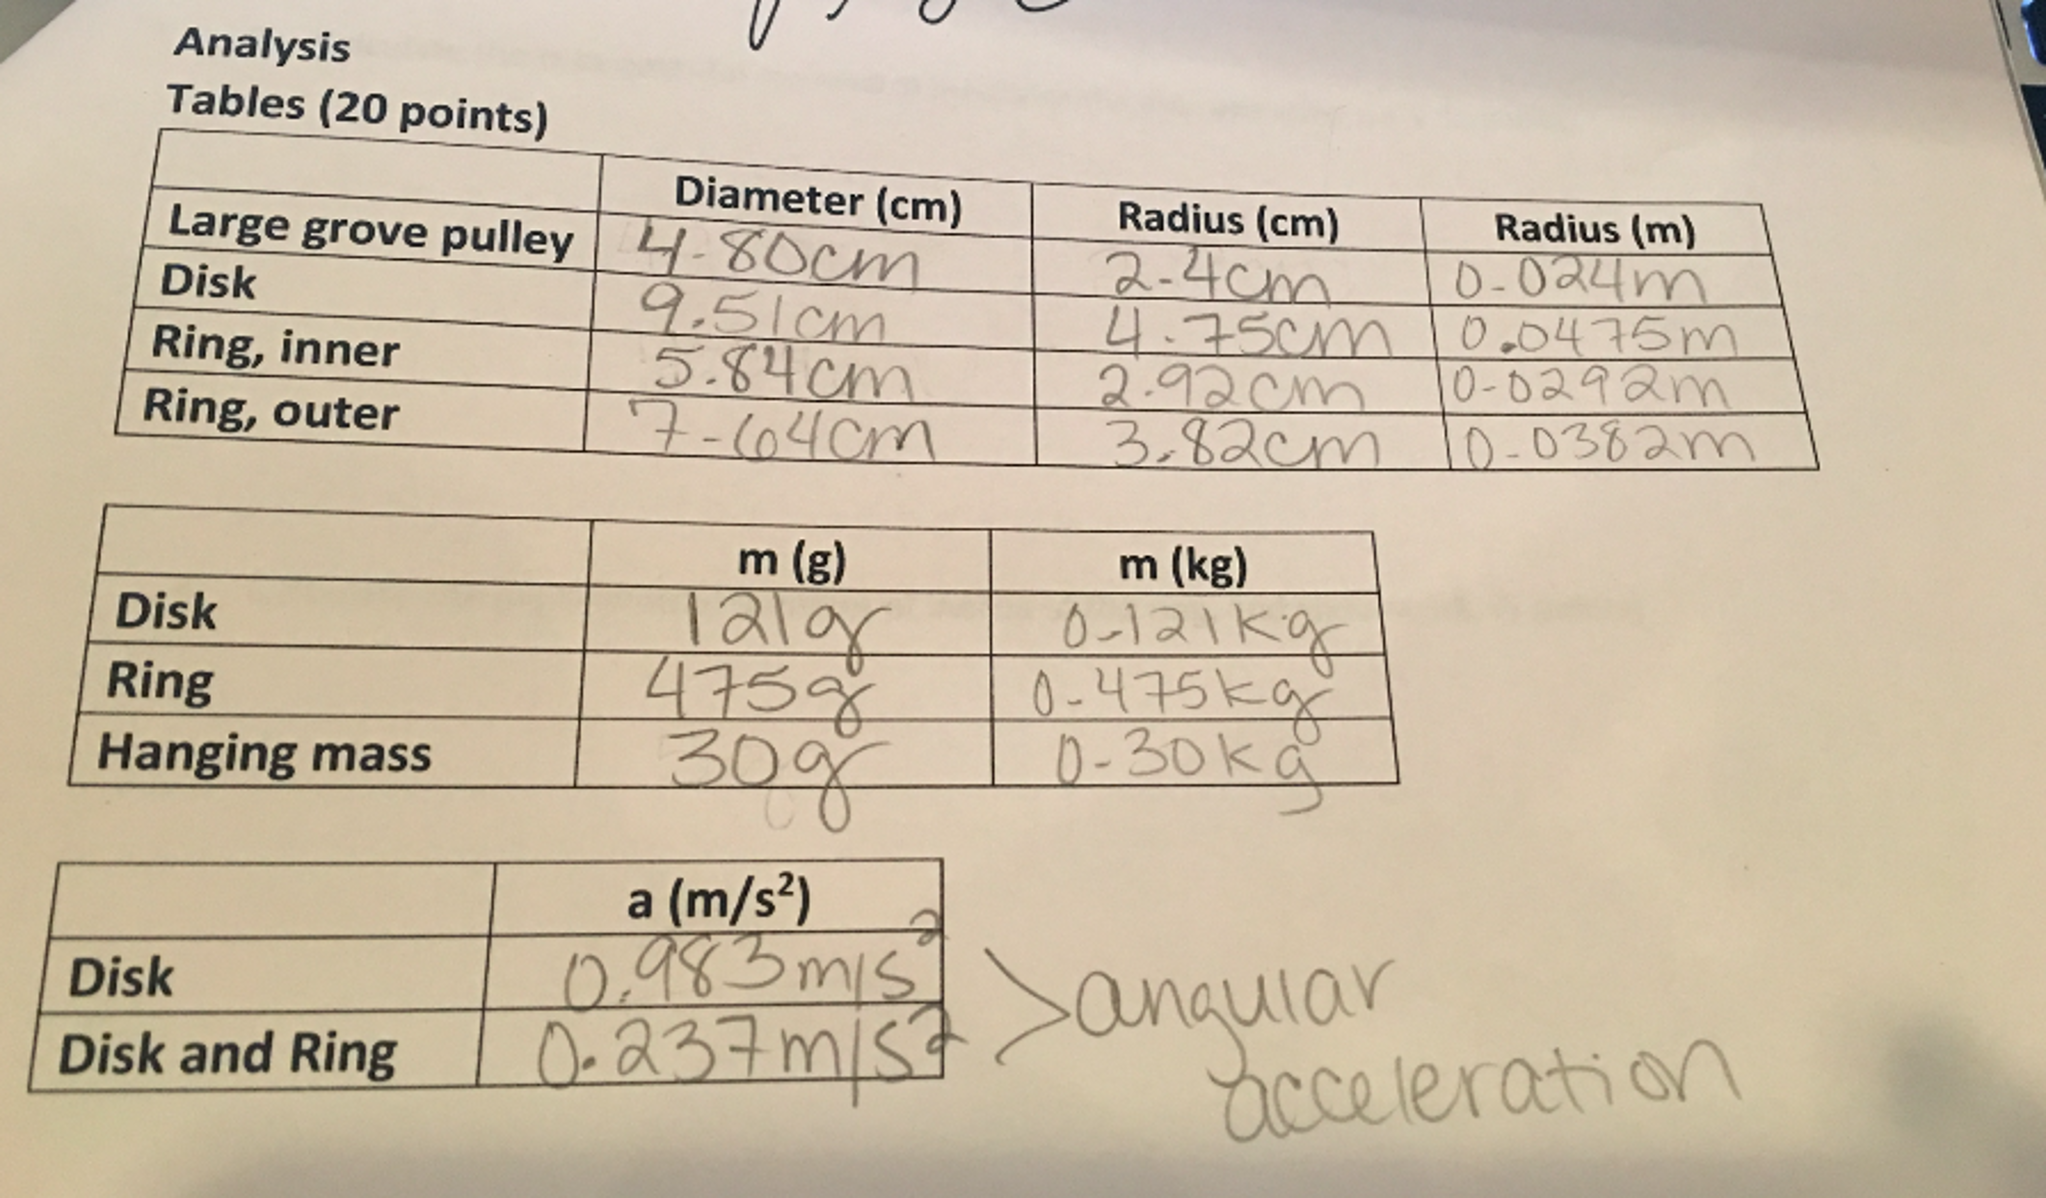 Analysis
Tables (20 points)
Diameter (cm) Radius (cm) Radius (m)
Large grove pulley 4.80cm 2.4cm 0.024m
Disk 9.51cm 4.75cm 0.0475m
Ring, inner 5.84cm 2.92cm 0.0292m
Ring, outer 7.64cm 3.82cm 0.0382m
m (g) m (kg)
Disk 121g 0.121kg
Ring 475g 0.475kg
Hanging mass 30g 0.30kg
a (m/s²)
Disk 0.983m/s²
Disk and Ring 0.237m/s²
> angular
acceleration